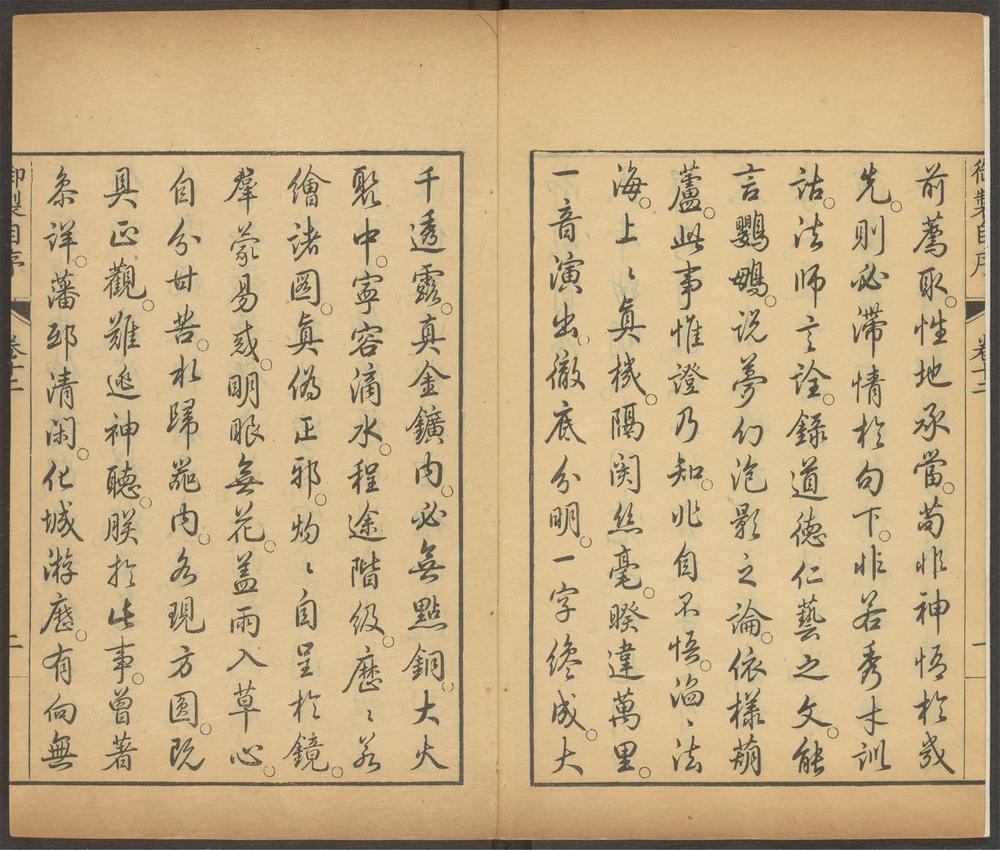 御製自序
卷十二
一
前薦取。性地承當。苟非神悟於幾
先。則必滯情於句下。非若秀才訓
詁。法师言詮。錄道德仁藝之文。能
言鸚鵡。说夢幻泡影之論。依樣葫
蘆。此事惟證乃知。非自不悟。滔〻法
海。上〻真機。隔関丝毫。暌違萬里。
一音演出。徹底分明。一字終成。大
千透露。真金鑛内。必無點銅。大火
聚中。寧容滴水。程途階级。歷〻若
繪諸圖。真偽正邪。灼〻自呈於鏡。
羣蒙易惑。明眼無花。蓋雨入草心。
自分甘苦。水歸器内。各現方圓。既
具正觀。難逃神聽。朕於此事。曾著
条详。藩邸清闲。化城游歷。有向無
御製自序
卷十二
二